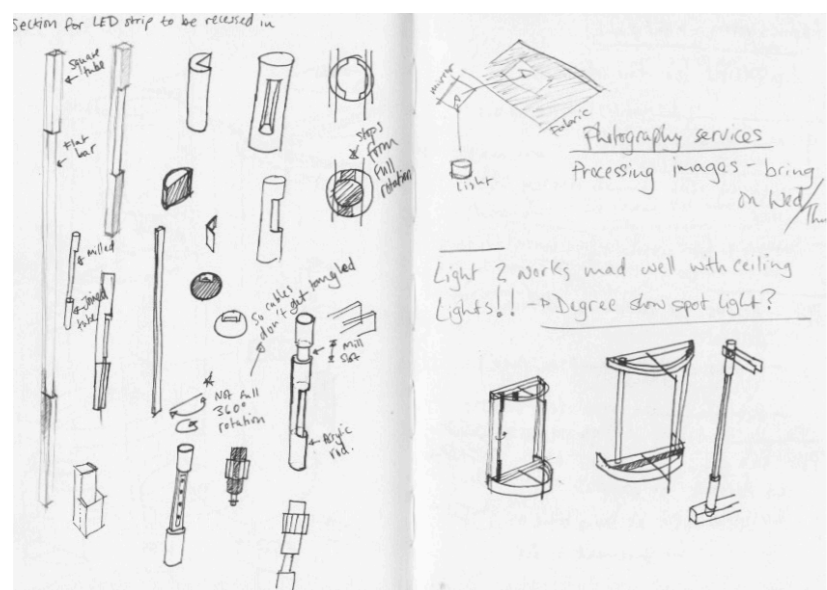 Section for LED strip to be recessed in
Square
tube
Flat
bar
Milled
Joined
tube
stops
from
full
rotation
So cables
don't get tangled
Mill
Slot
Not full
360°
rotation
Acrylic
rod.
mirror
Fabric
Light
Photography services
Processing images - bring
on Wed/
Thu
Light 2 works mad well with ceiling
Lights!! -> Degree show spot light?